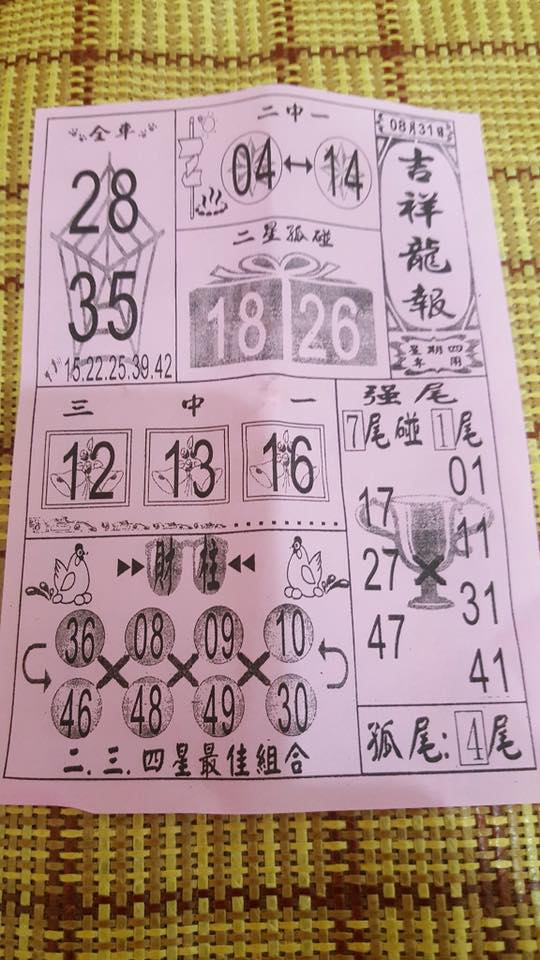 08月31日
吉祥龍報
星期四
專用
全車
28
35
15.22.25.39.42
二中一
04↔14
二星孤碰
18 26
三中一
12 13 16
强尾
7尾碰1尾
01
17
11
27
31
47
41
財柱
36 08 09 10
46 48 49 30
二.三.四星最佳組合
孤尾:4尾